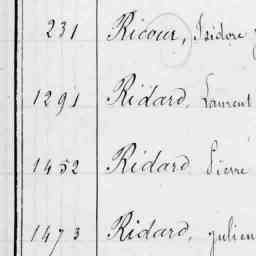 231 Ricour, Isidore
1291 Ridard, Laurent
1452 Ridard Pierre
1473 Ridard, Julien